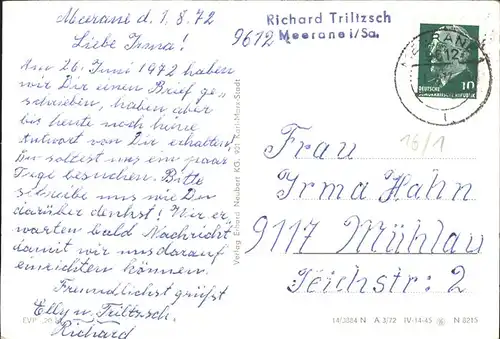 Meerane d. 1.8.72
Liebe Irma!
Am 26. Juni 1972 haben
wir Dir einen Brief ge=
schrieben, haben aber
bis heute noch keine
Antwort von Dir erhalten,
Du solltest uns ein paar
Tage besuchen. Bitte
schreibe uns wie Du
darüber denkst! Wir er,
warten bald Nachricht,
damit wir uns darauf
einrichten können.
Freundlichst grüßt
Elly u. Triltzsch.
Richard
EVP
Verlag Erhard Neubert KG, 901 Karl-Marx-Stadt
9612
Richard Triltzsch
Meerane i/Sa.
MEERANE
DEUTSCHE
DEMOKRATISCHE REPUBLIK
10
16/1
Frau
Irma Hahn
9117 Mühlau
Teichstr: 2
14/3884 N A 3/72 IV-14-45 N 8215